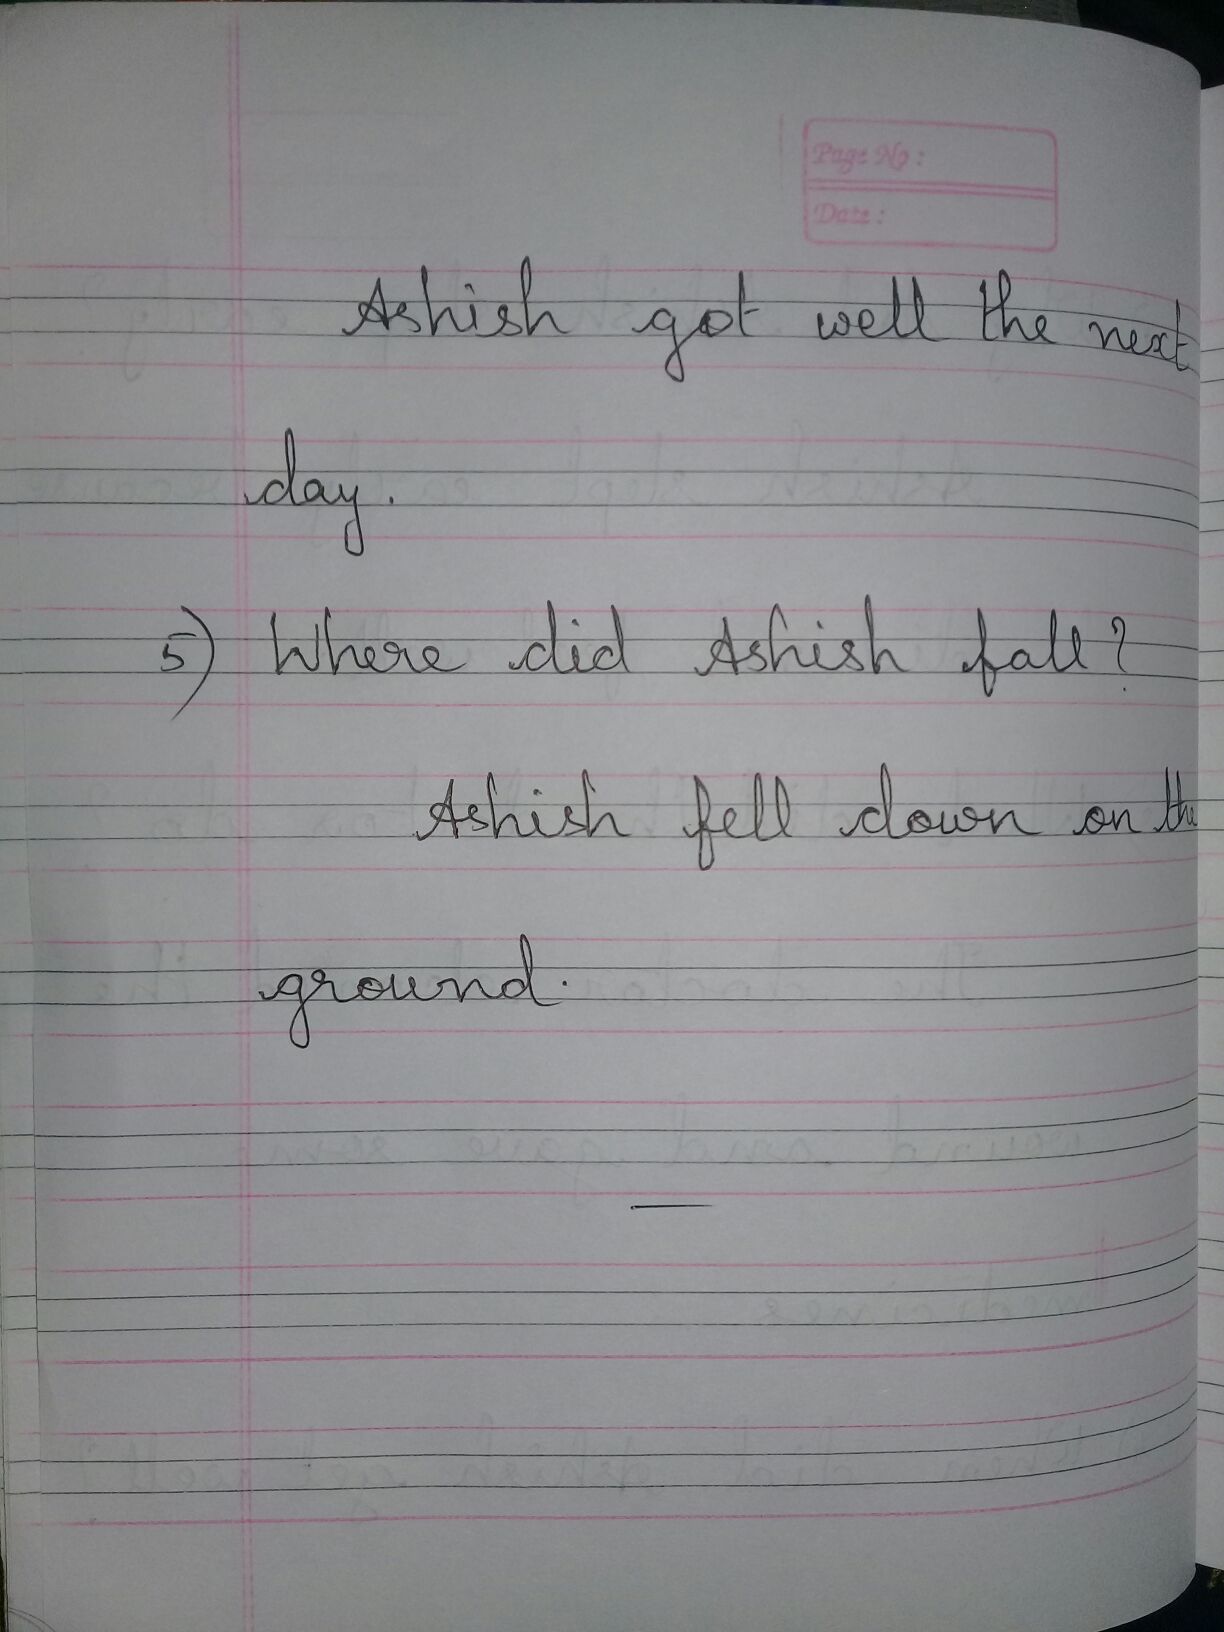 Page No :
Date :
Ashish got well the next
day.
5) Where did Ashish fall?
Ashish fell down on the
ground.